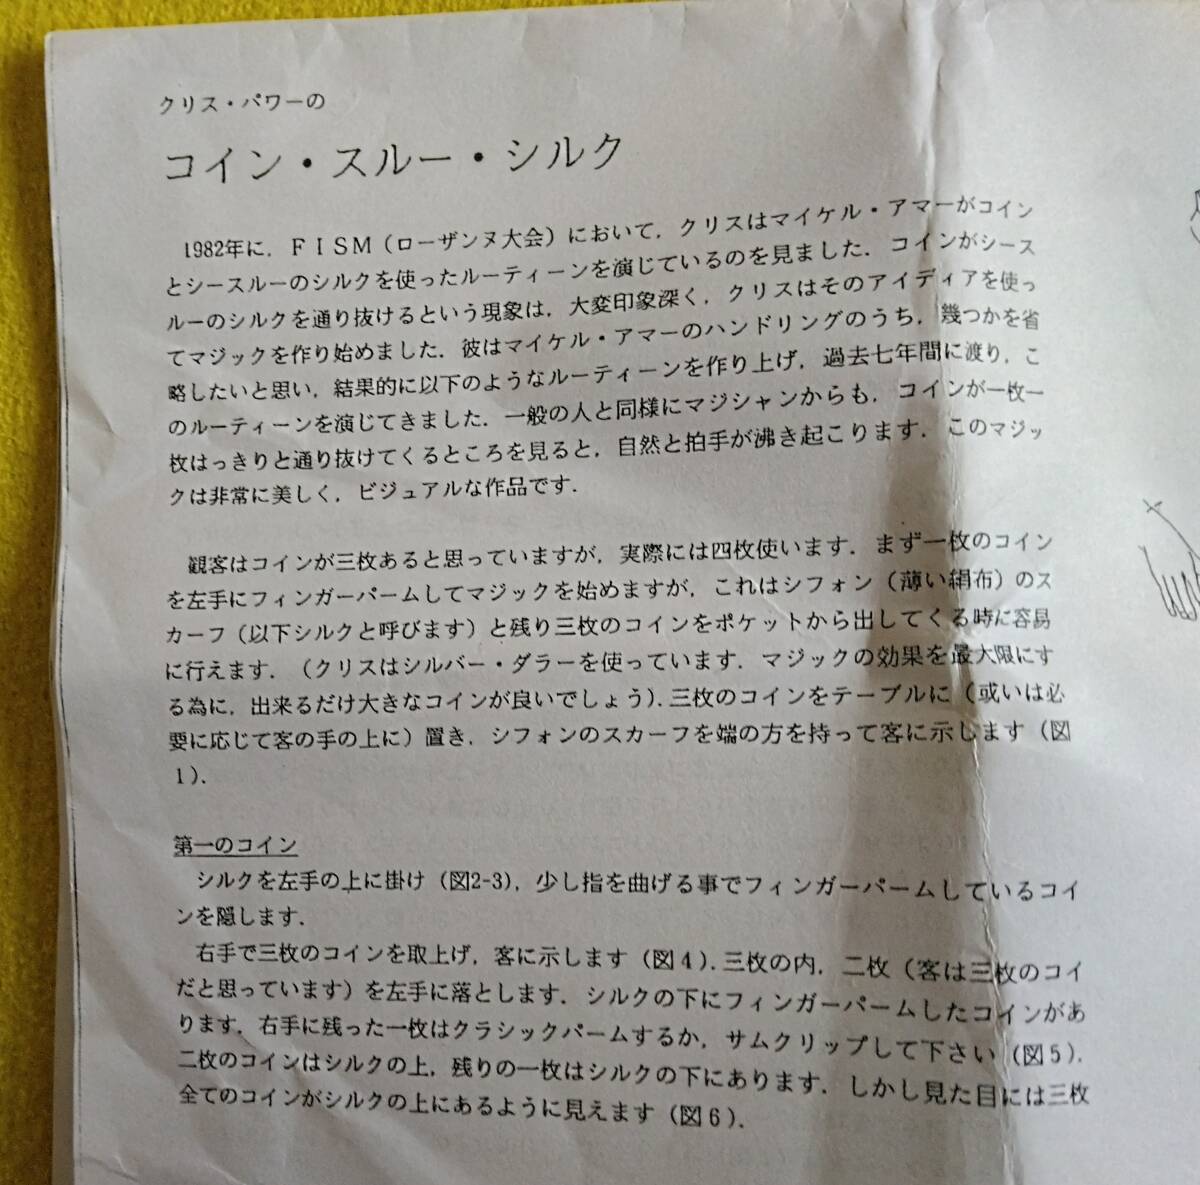 クリス・パワーの
コイン・スルー・シルク
1982年に，ＦＩＳＭ（ローザンヌ大会）において，クリスはマイケル・アマーがコイン
とシースルーのシルクを使ったルーティーンを演じているのを見ました．コインがシース
ルーのシルクを通り抜けるという現象は，大変印象深く，クリスはそのアイディアを使っ
てマジックを作り始めました．彼はマイケル・アマーのハンドリングのうち，幾つかを省
略したいと思い，結果的に以下のようなルーティーンを作り上げ，過去七年間に渡り，こ
のルーティーンを演じてきました．一般の人と同様にマジシャンからも，コインが一枚一
枚はっきりと通り抜けてくるところを見ると，自然と拍手が沸き起こります．このマジッ
クは非常に美しく，ビジュアルな作品です．
観客はコインが三枚あると思っていますが，実際には四枚使います．まず一枚のコイン
を左手にフィンガーパームしてマジックを始めますが，これはシフォン（薄い絹布）のス
カーフ（以下シルクと呼びます）と残り三枚のコインをポケットから出してくる時に容易
に行えます．（クリスはシルバー・ダラーを使っています．マジックの効果を最大限にす
る為に，出来るだけ大きなコインが良いでしょう）．三枚のコインをテーブルに（或いは必
要に応じて客の手の上に）置き，シフォンのスカーフを端の方を持って客に示します（図
1）．
第一のコイン
シルクを左手の上に掛け（図2-3），少し指を曲げる事でフィンガーパームしているコイ
ンを隠します．
右手で三枚のコインを取上げ，客に示します（図4）．三枚の内，二枚（客は三枚のコイ
だと思っています）を左手に落とします．シルクの下にフィンガーパームしたコインがあ
ります．右手に残った一枚はクラシックパームするか，サムクリップして下さい（図5）．
二枚のコインはシルクの上，残りの一枚はシルクの下にあります．しかし見た目には三枚
全てのコインがシルクの上にあるように見えます（図6）．